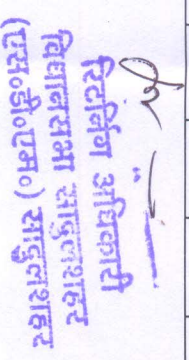 रिटर्निंग अधिकारी
विधानसभा सादुलशहर
(एस०डी०एम०) सादुलशहर